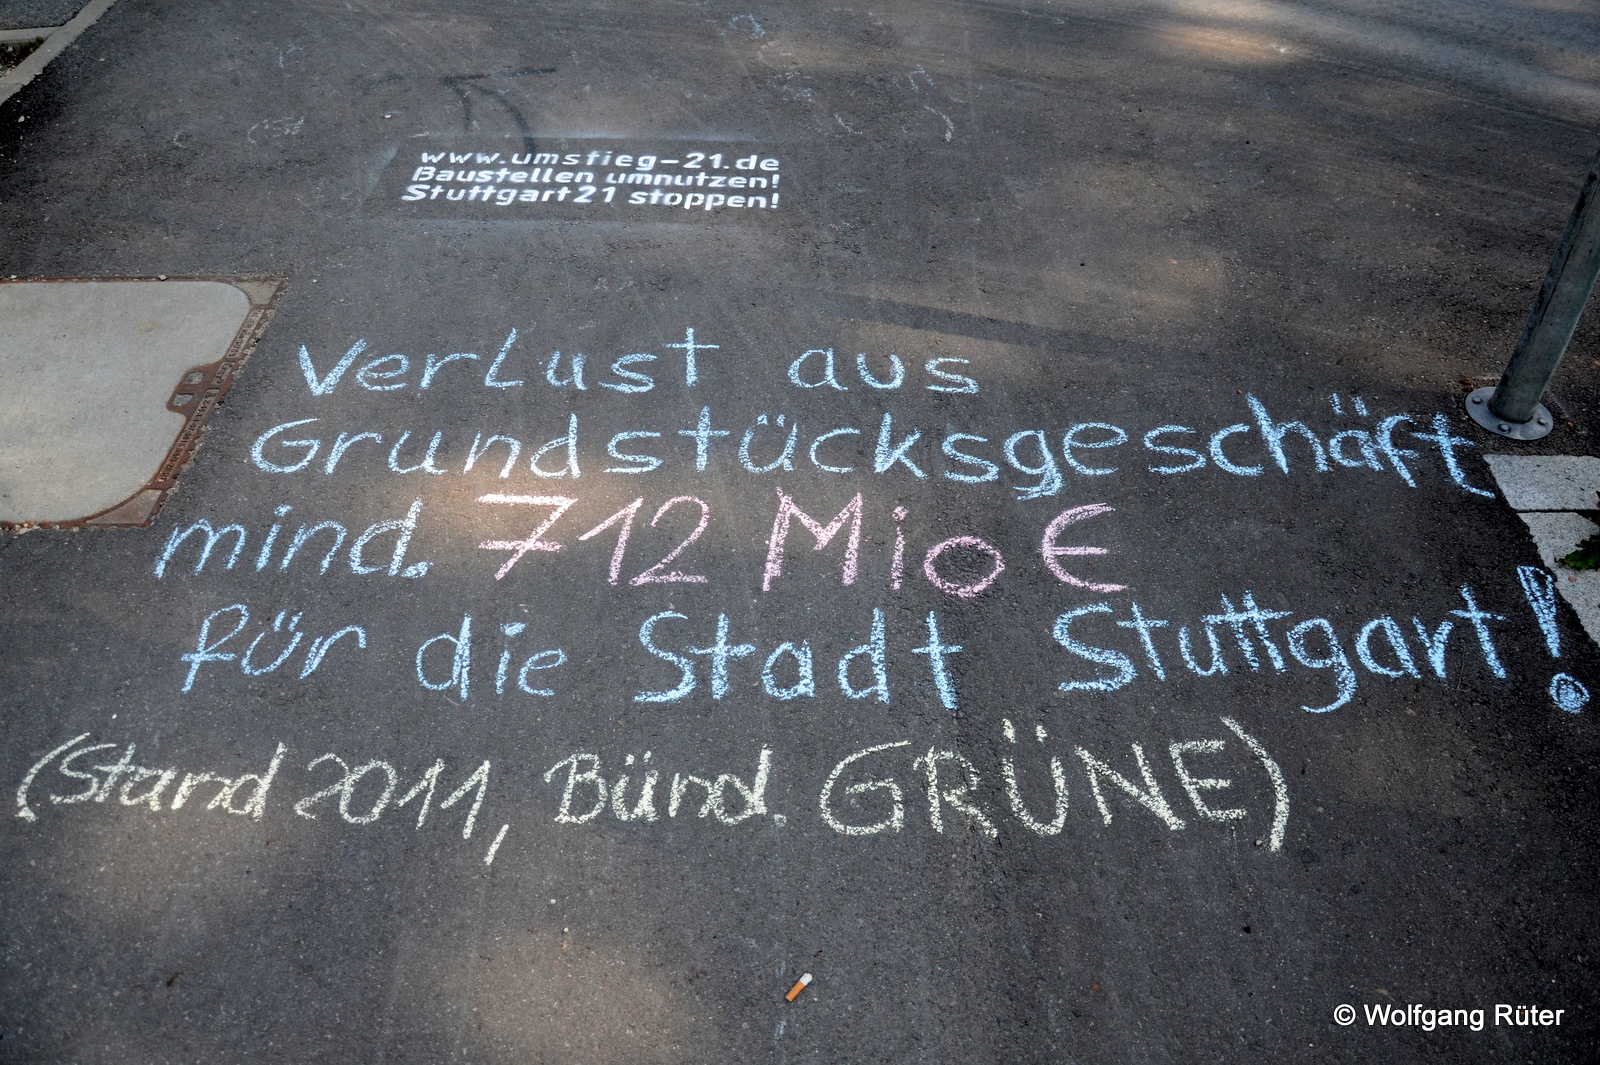 www.umstieg-21.de
Baustellen umnutzen!
Stuttgart21 stoppen!
Verlust aus
Grundstücksgeschäft
mind. 712 Mio €
für die Stadt Stuttgart!
(Stand 2011, Bünd. GRÜNE)
© Wolfgang Rüter